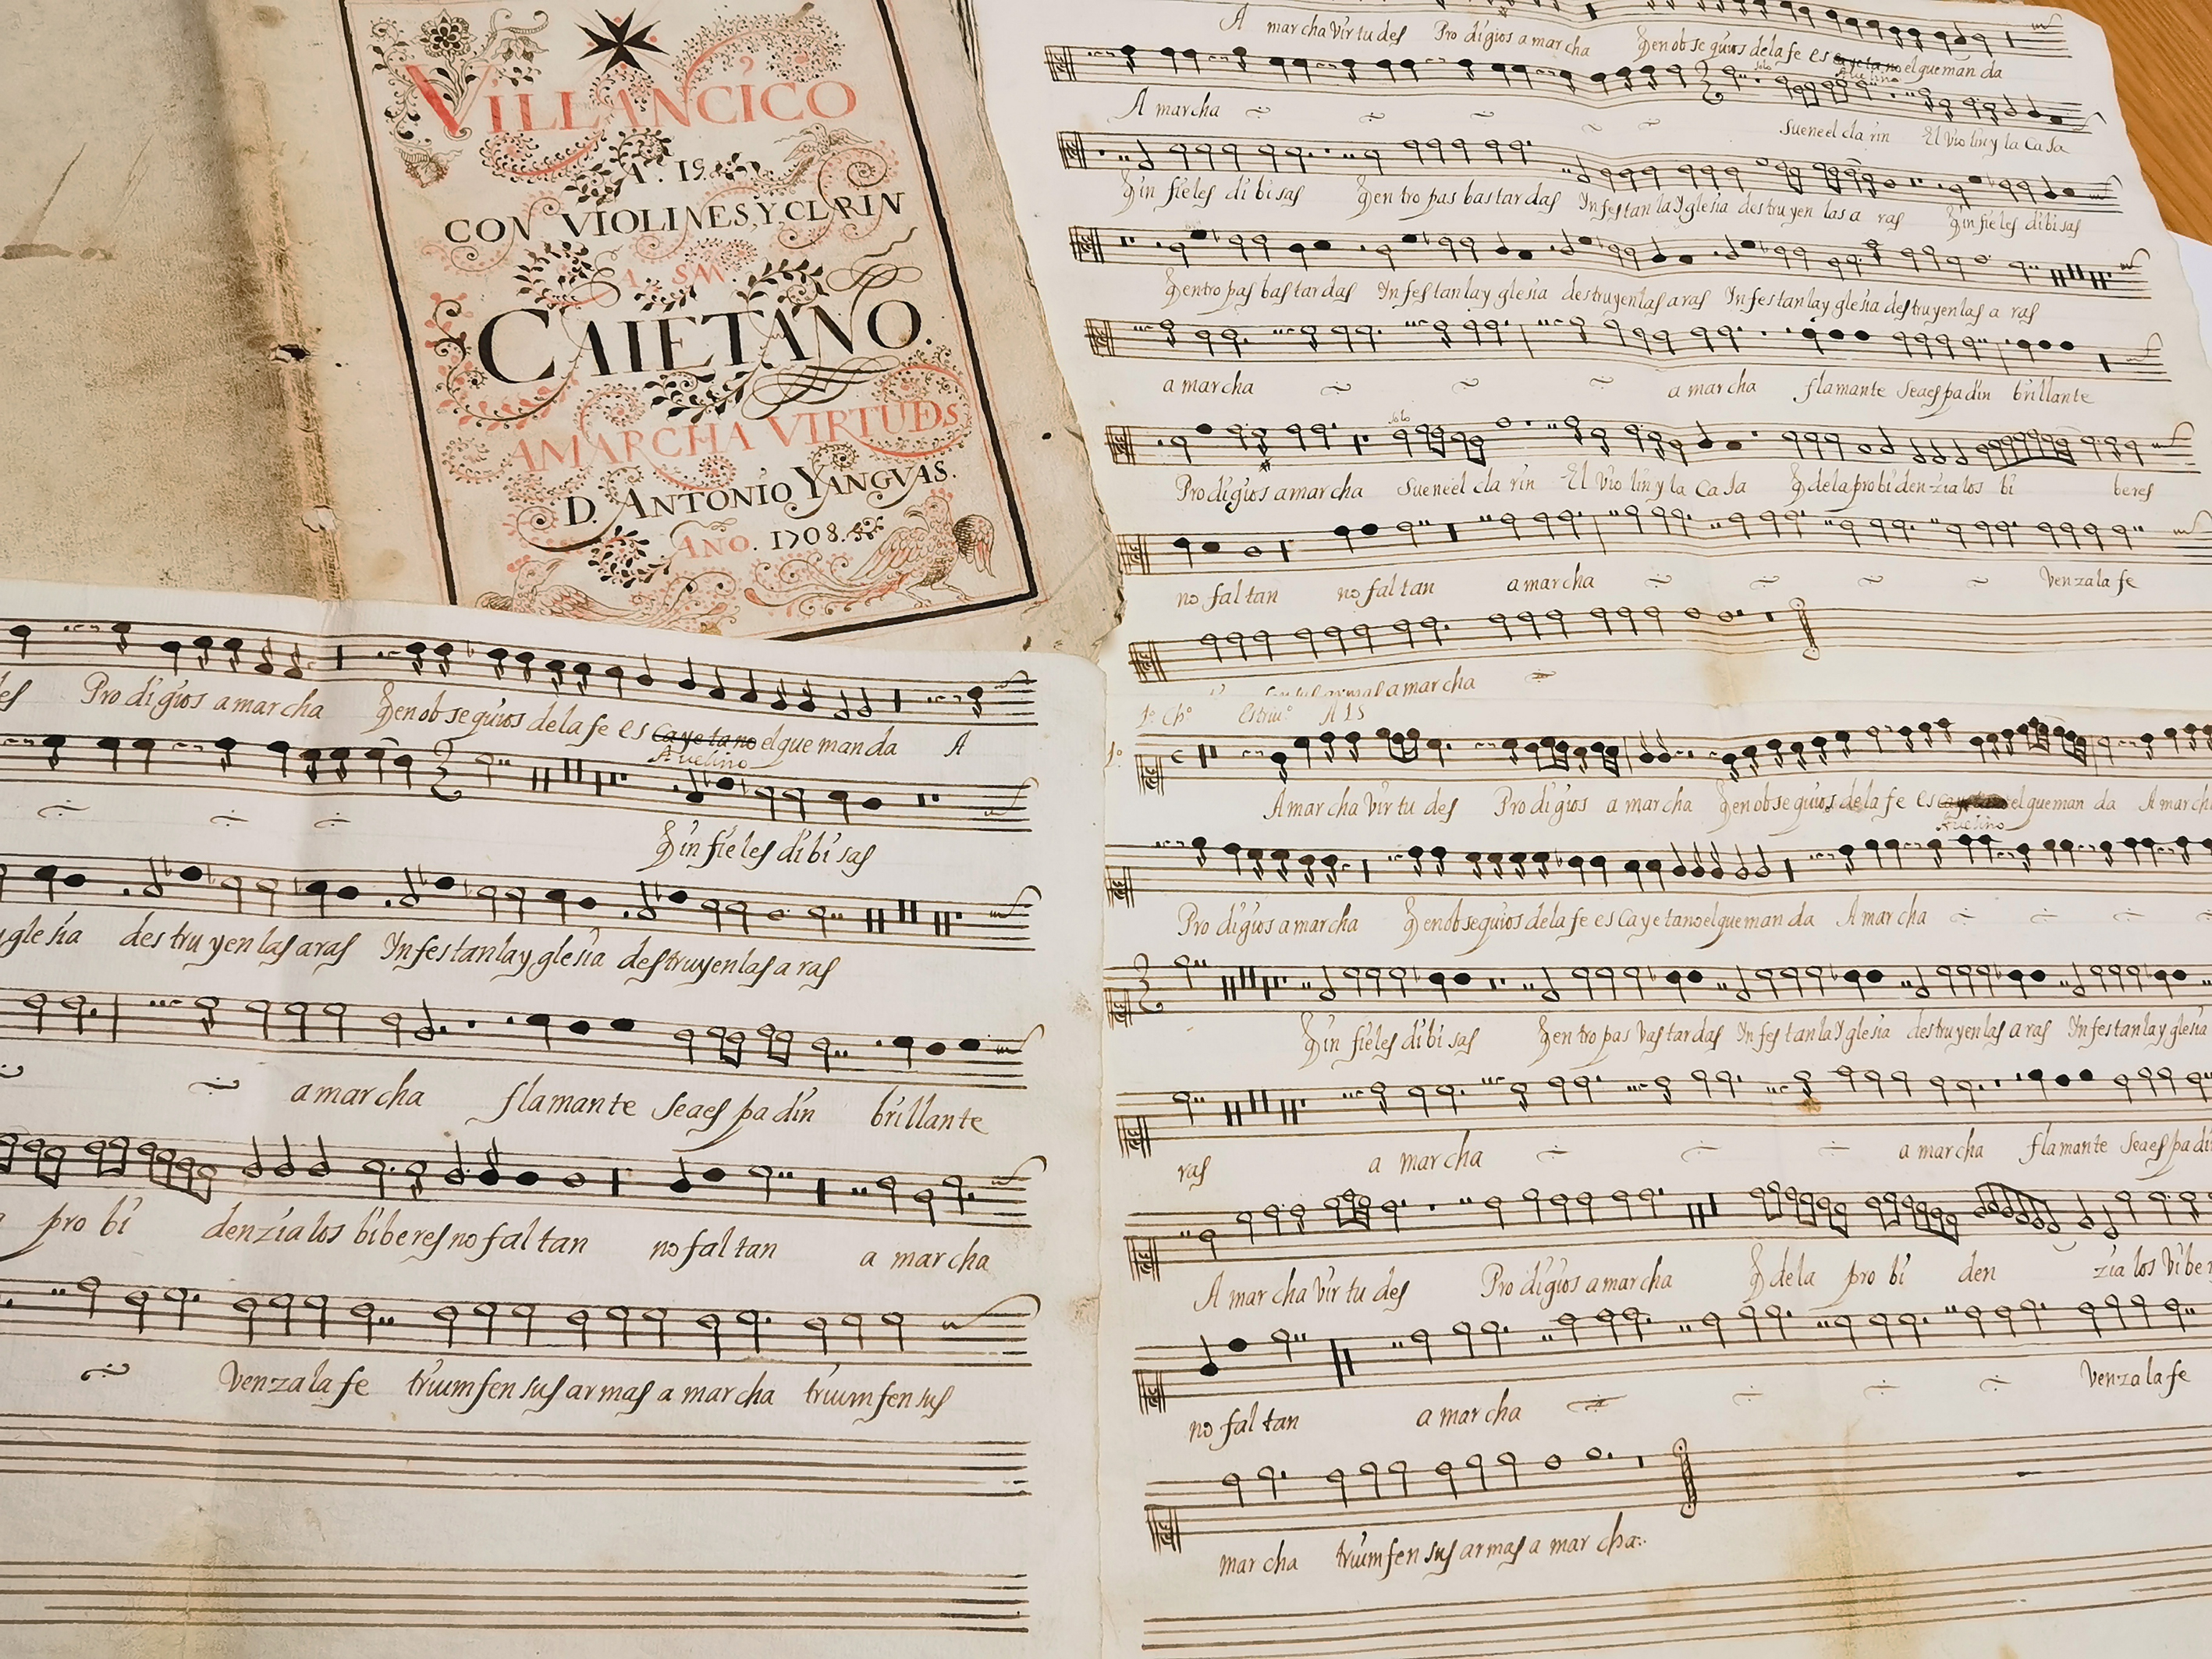 VILLANCICO
A. 15.
CON VIOLINES, Y, CLRIN
A. SN.
CAIETANO.
AMARCHA VIRTUDs
D. ANTONIO YANGVAS.
AÑO. 1708.
A marcha Virtudes Prodigios a marcha Qen obsequios de la fe es cayetano el que manda
Avelino
A marcha solo Suene el clarin El Violin y la Caja
Qinfieles dibisas Qen tropas bastardas Infestan la Yglesia destruyen las aras Qinfieles dibisas
Qentropas bastardas Infestan la yglesia destruyen las aras Infestan la yglesia destruyen las aras
a marcha a marcha flamante sea espadin brillante
solo
Prodigios a marcha Suene el clarin El Violin y la Caja Q de la probidenzia los biberes
no faltan no faltan a marcha Venza la fe
sus armas a marcha
des Prodigios a marcha Qen obsequios de la fe es cayetano el que manda A
Avelino
Qinfieles dibisas
yglesia destruyen las aras Infestan la yglesia destruyen las aras
a marcha flamante sea espadin brillante
probidenzia los biberes no faltan no faltan a marcha
Venza la fe triumfen sus armas a marcha triumfen sus
1º Chº Estriuº A 15
1º
A marcha Virtudes Prodigios a marcha Qen obsequios de la fe es el que manda A march
Avelino
Prodigios a marcha Qen obsequios de la fe es Cayetano el que manda A marcha
Qinfieles dibisas Qen tropas Vastardas Infestan la Yglesia destruyen las aras Infestan la yglesia
ras a marcha a marcha flamante sea espadi
A marcha Virtudes Prodigios a marcha Q de la probidenzia los Viber
no faltan a marcha Venza la fe
marcha triumfen sus armas a marcha